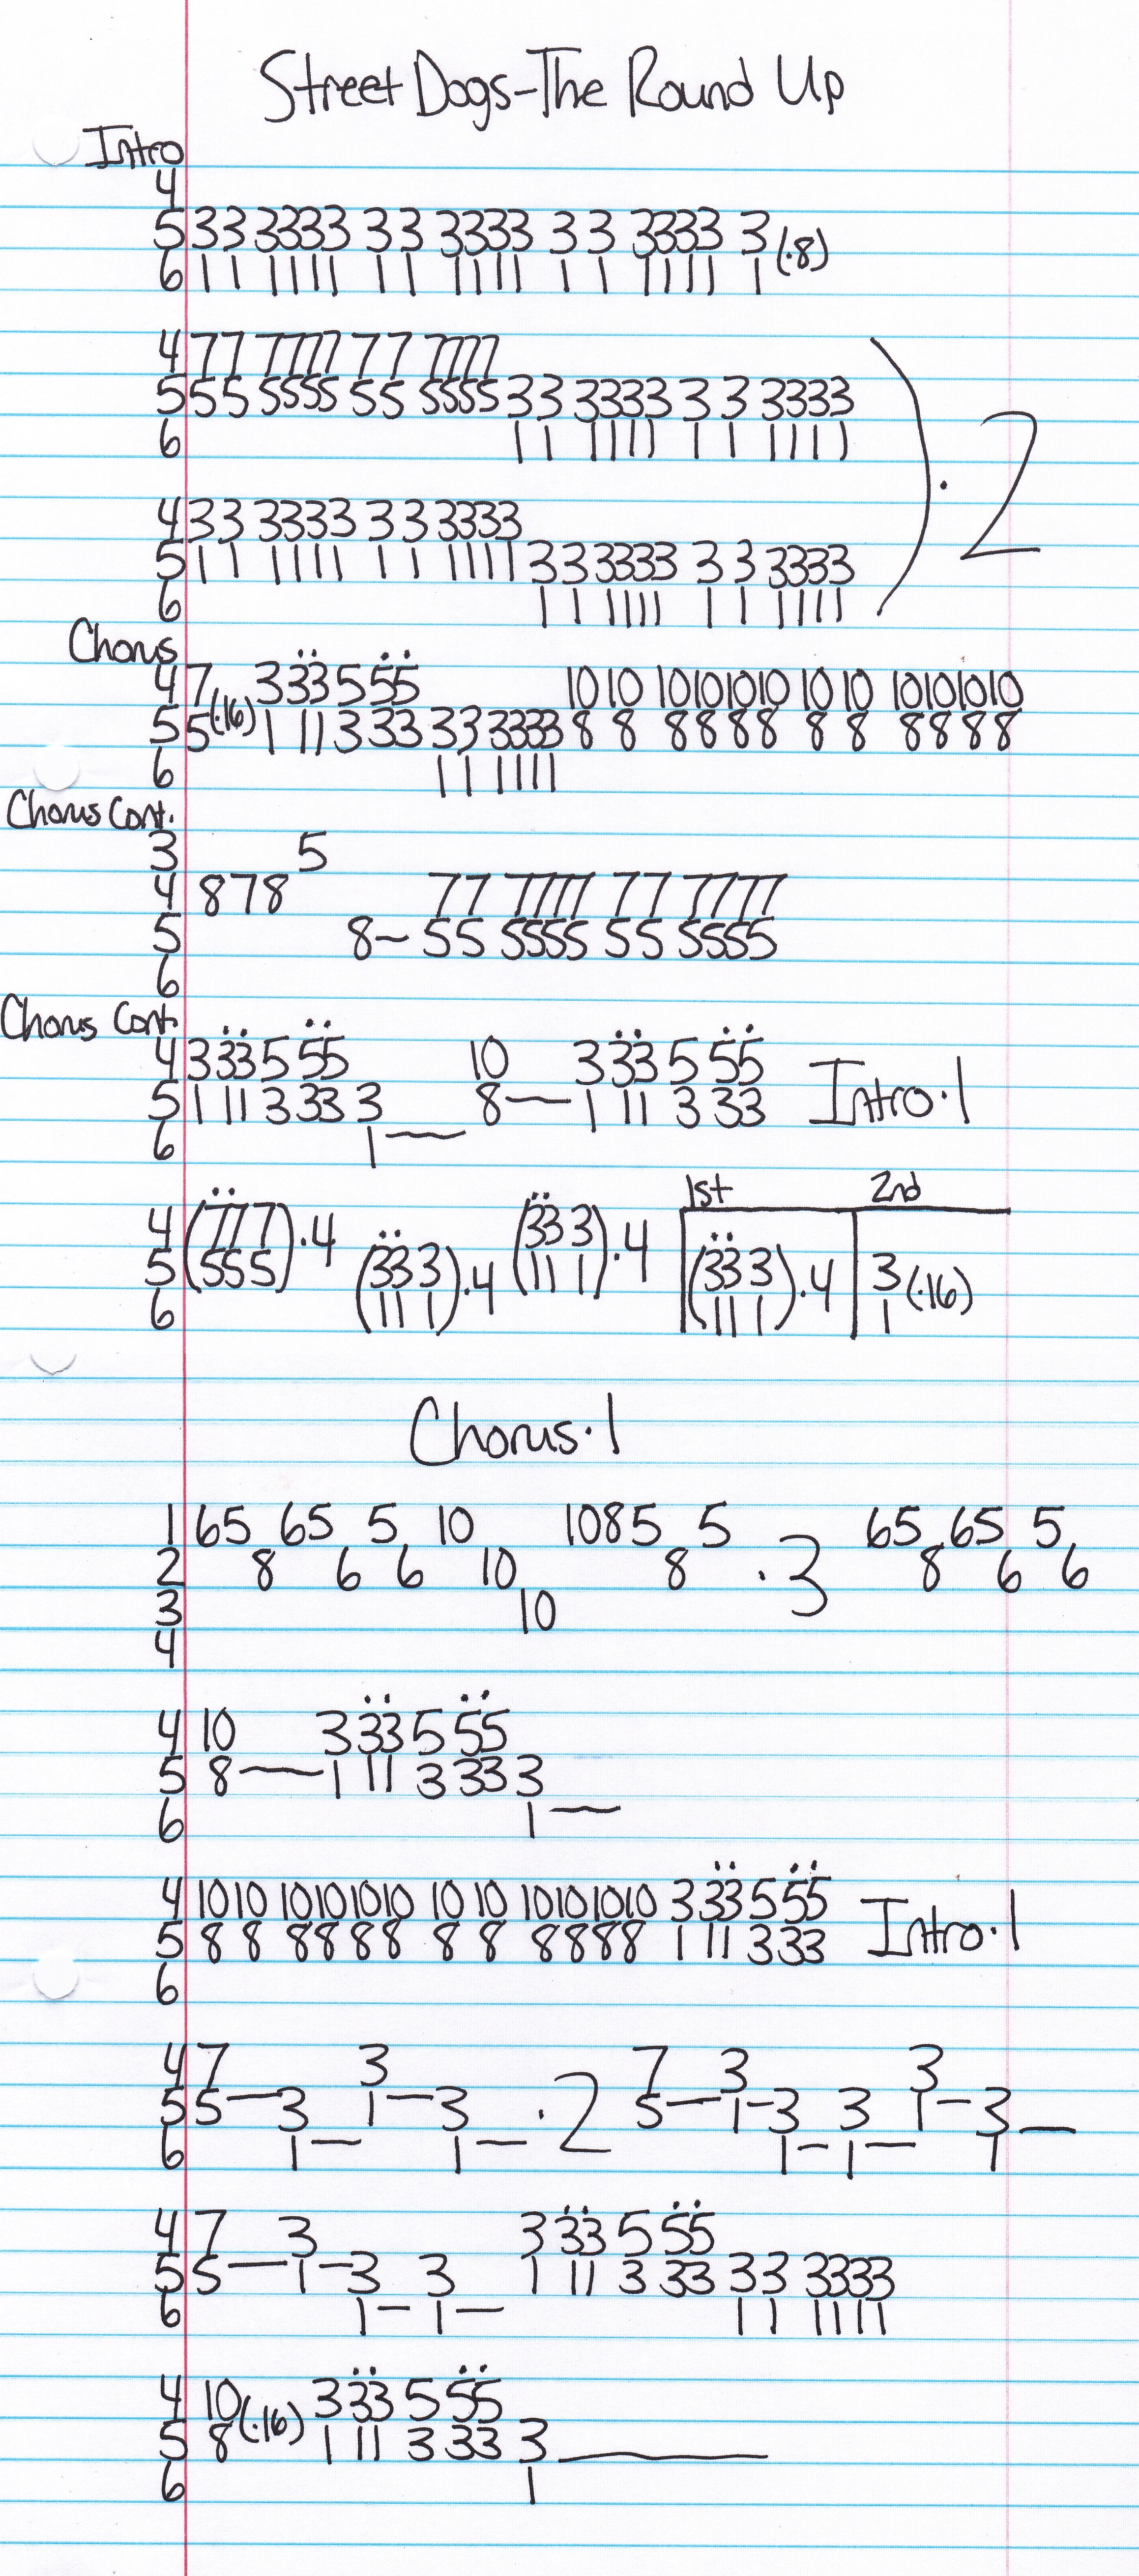 Street Dogs-The Round Up
Intro
4
5 33 3333 3 3 3333 3 3 3333 3 (·8)
6 11 1111 1 1 1111 1 1 1111 1
4 77 7777 77 7777
5 55 5555 55 5555 33 3333 3 3 3333 ) · 2
6 11 1111 1 1 1111
4 33 3333 33 3333
5 11 1111 11 1111 33 3333 3 3 3333
6 11 1111 1 1 1111
Chorus
4 7 3 33 5 55 10 10 10101010 10 10 10101010
5 5 (·16) 1 11 3 33 33 3333 8 8 8888 8 8 8888
6 11 1111
Chorus Cont.
3 5
4 878 77 7777 77 7777
5 8~ 55 5555 55 5555
6
Chorus Cont.
4 3 33 5 55 10 3 33 5 55 Intro·1
5 1 11 3 33 3 8— 1 11 3 33
6 1—
1st 2nd
4 (77 7)·4 (33 3)·4
5 (55 5) (33 3)·4 (11 1) (33 3)·4 3 (·16)
6 (11 1) (11 1) 1
Chorus·1
1 65 65 5 10 1085 5 65 65 5
2 8 6 6 10 8 ·3 8 6 6
3 10
4
4 10 3 33 5 55
5 8— 1 11 3 33 3
6 1—
4 10 10 10101010 10 10 10101010 3 33 5 55 Intro·1
5 8 8 8888 8 8 8888 1 11 3 33
6
4 7 3 7 3 3
5 5—3 1—3 ·2 5—1-3 3 1-3—
6 1— 1— 1- 1— 1
4 7 3 3 33 5 55
5 5—1-3 3 1 11 3 33 33 3333
6 1- 1— 11 1111
4 10 3 33 5 55
5 8 (·16) 1 11 3 33 3—
6 1